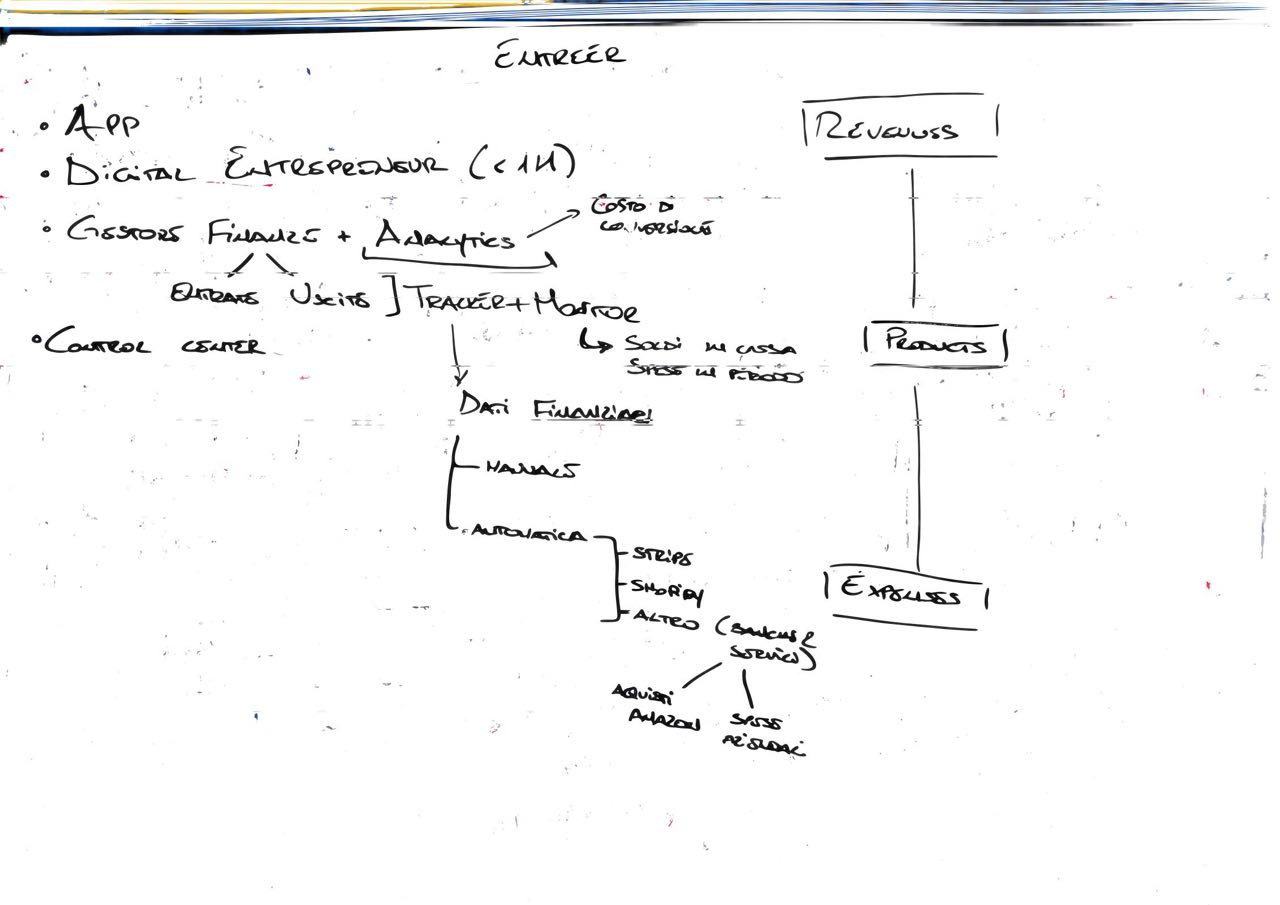 ENTREÉR
• APP
• DIGITAL ENTREPRENEUR (<1M)
• GESTORE FINANZE + ANALYTICS
COSTO DI
CONVERSIONE
ENTRATE USCITE ] TRACKER + MONITOR
• CONTROL CENTER
SOLDI IN CASSA
SPESE IN PERIODO
DATI FINANZIARI
MANUALE
AUTOMATICA
STRIPE
SHOPIFY
ALTRO (BANCHE E
SERVICE)
ACQUISTI
AMAZON
SPESE
AZIENDALI
REVENUES
PRODUCTS
EXPENSES